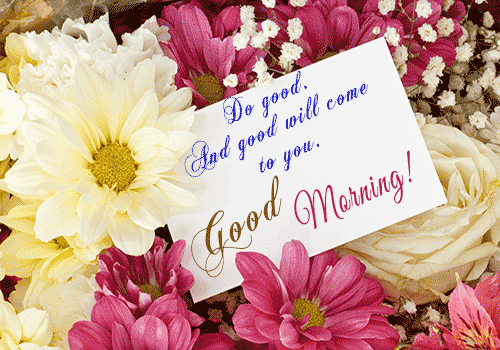 Do good,
And good will come
to you,
Good Morning!